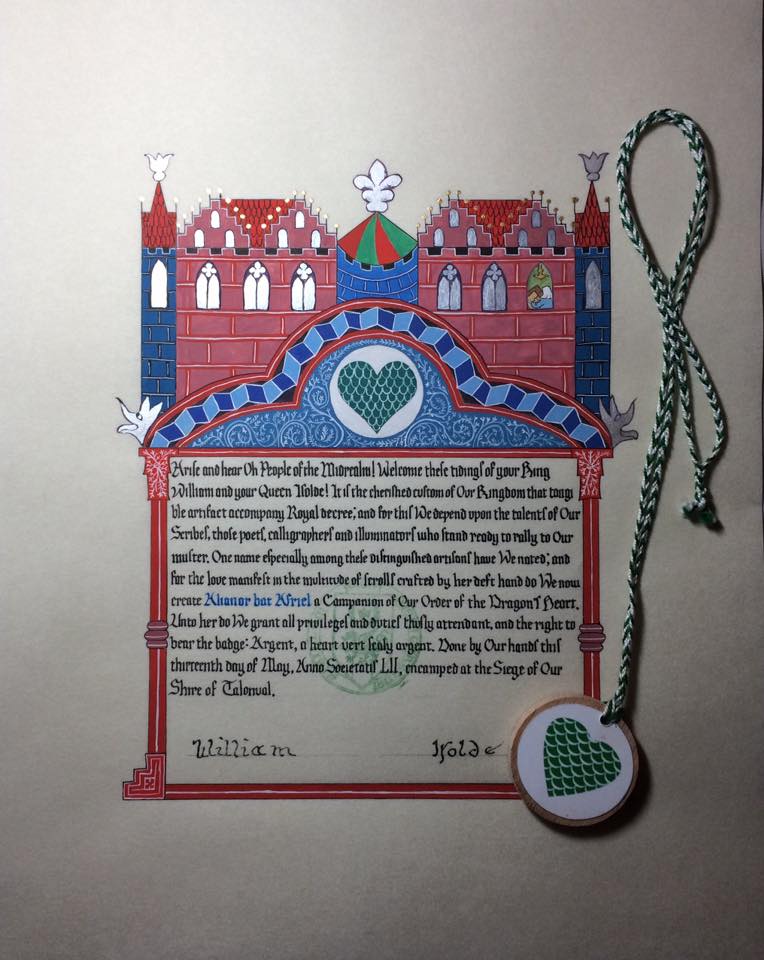 Arise and hear Oh People of the Midrealm! Welcome these tidings of your King
William and your Queen Isolde! It is the cherished custom of Our Kingdom that tangi
ble artifact accompany Royal decree; and for this We depend upon the talents of Our
Scribes, those poets, calligraphers and illuminators who stand ready to rally to Our
muster. One name especially among these distinguished artisans have We noted; and
for the love manifest in the multitude of scrolls crafted by her deft hand do We now
create Alianor bat Asriel a Companion of Our Order of the Dragon's Heart.
Unto her do We grant all privileges and duties thusly attendant, and the right to
bear the badge: Argent, a heart vert scaly argent. Done by Our hands this
thirteenth day of May, Anno Societatis LII, encamped at the Siege of Our
Shire of Talonval.
William Isolde